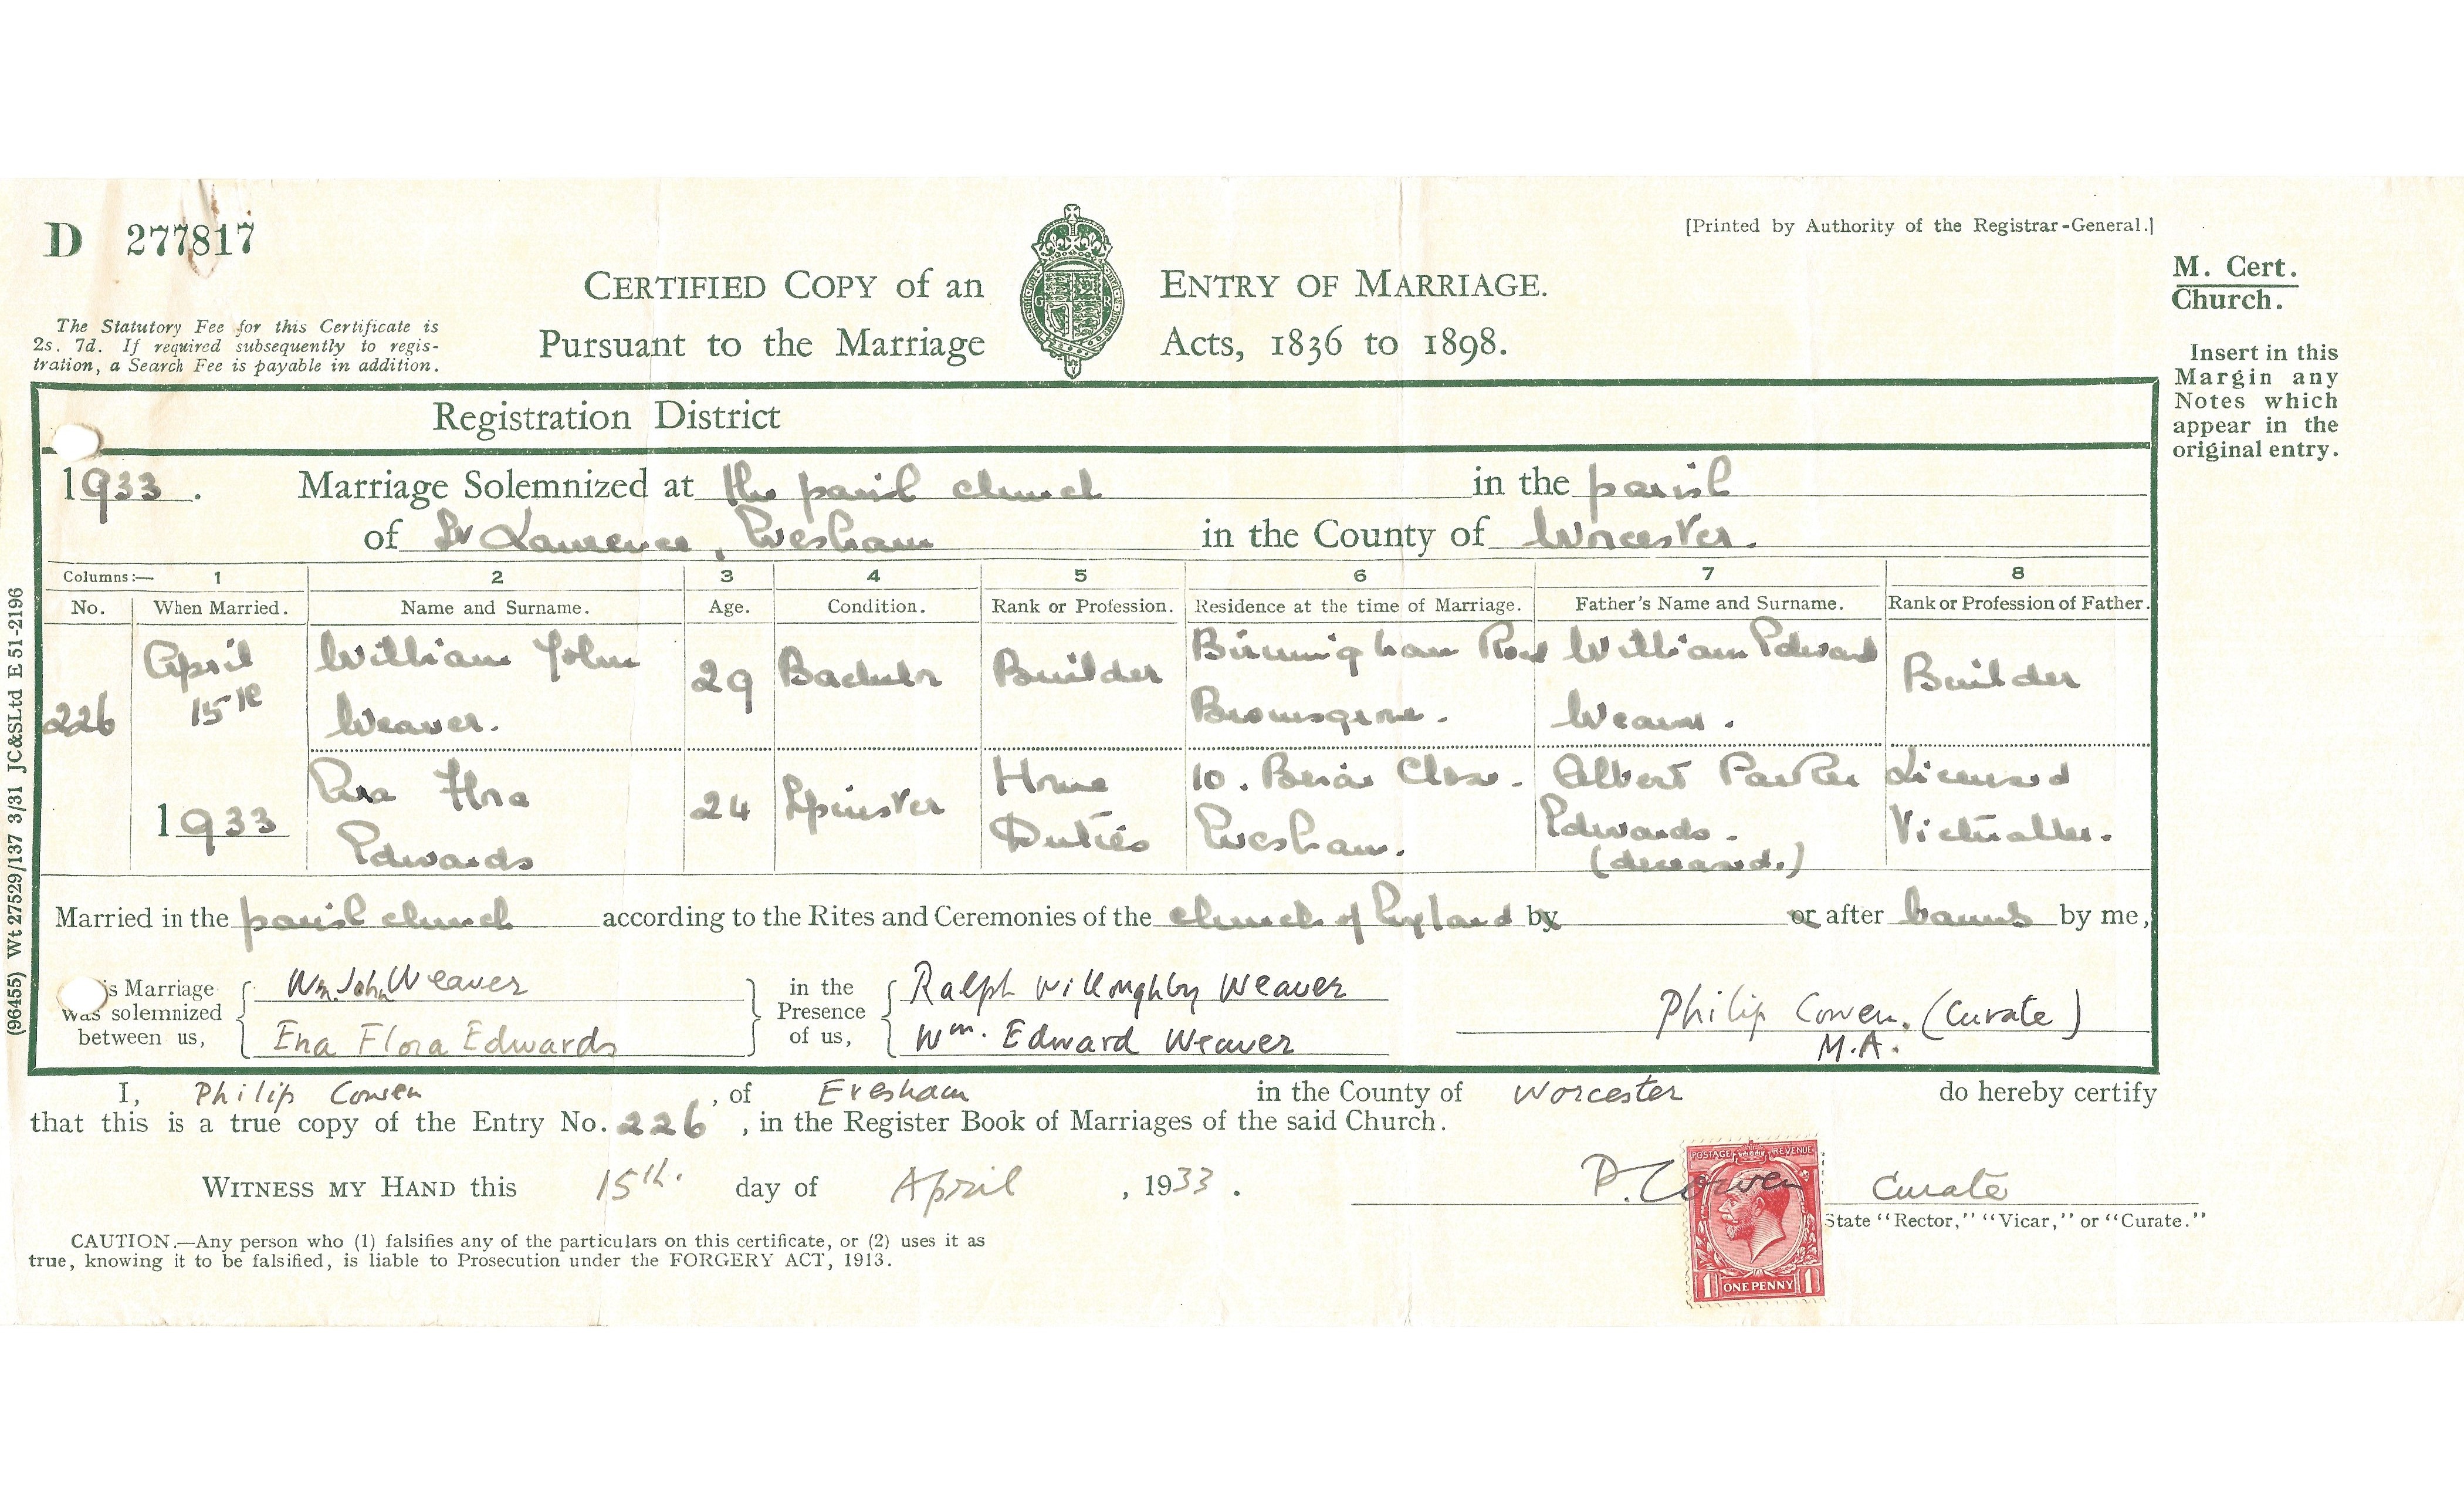 D 277817
[Printed by Authority of the Registrar-General.]
M. Cert.
Church.
CERTIFIED COPY of an ENTRY OF MARRIAGE.
Pursuant to the Marriage Acts, 1836 to 1898.
The Statutory Fee for this Certificate is
2s. 7d. If required subsequently to regis-
tration, a Search Fee is payable in addition.
Insert in this
Margin any
Notes which
appear in the
original entry.
Registration District
1933. Marriage Solemnized at the parish church in the parish
of St Laurence, Evesham in the County of Worcester.
Columns:— 1 2 3 4 5 6 7 8
No. When Married. Name and Surname. Age. Condition. Rank or Profession. Residence at the time of Marriage. Father's Name and Surname. Rank or Profession of Father.
226 April 15th 1933
William John Weaver. 29 Bachelor Builder Birmingham Road Bromsgrove. William Edward Weaver. Builder
Ena Flora Edwards 24 Spinster Home Duties 10. Briar Close. Evesham. Albert Parker Edwards. (deceased.) Licensed Victualler.
Married in the parish church according to the Rites and Ceremonies of the church of England by or after banns by me,
is Marriage
was solemnized
between us,
Wm. John Weaver
Ena Flora Edwards
in the
Presence
of us,
Ralph Willoughby Weaver
Wm. Edward Weaver
Philip Cowen. (Curate)
M.A.
I, Philip Cowen, of Evesham in the County of Worcester do hereby certify
that this is a true copy of the Entry No. 226, in the Register Book of Marriages of the said Church.
WITNESS MY HAND this 15th. day of April, 1933.
P. Cowen Curate
State "Rector," "Vicar," or "Curate."
POSTAGE REVENUE
1 ONE PENNY 1
CAUTION.—Any person who (1) falsifies any of the particulars on this certificate, or (2) uses it as
true, knowing it to be falsified, is liable to Prosecution under the FORGERY ACT, 1913.
(96455) Wt 27529/137 3/31 JC&SLtd E 51-2196